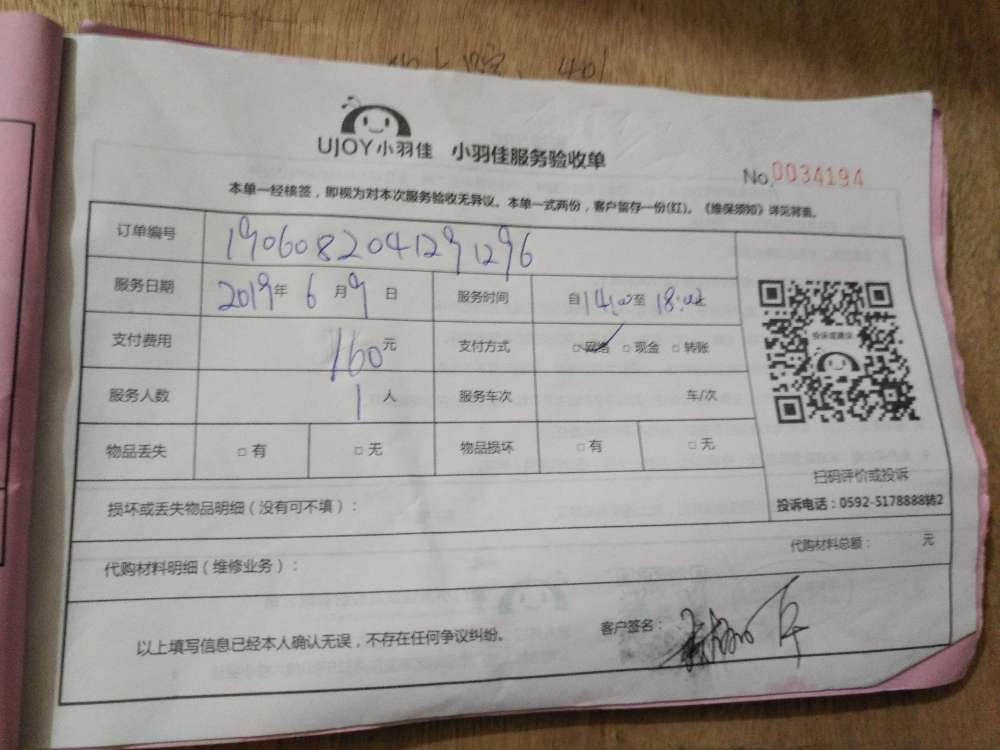 UJOY小羽佳 小羽佳服务验收单
No.0034194
本单一经核签，即视为对本次服务验收无异议。本单一式两份，客户留存一份(红)。《维保须知》详见背面。
订单编号 1906082041291296
服务日期 2019年 6月9日 服务时间 自14:00至18:00
支付费用 160元 支付方式 □网络 □现金 □转账
服务人数 1人 服务车次 车/次
物品丢失 □有 □无 物品损坏 □有 □无
投诉或建议
扫码评价或投诉
投诉电话：0592-5178888转2
损坏或丢失物品明细（没有可不填）：
代购材料明细（维修业务）： 代购材料总额： 元
以上填写信息已经本人确认无误，不存在任何争议纠纷。 客户签名：